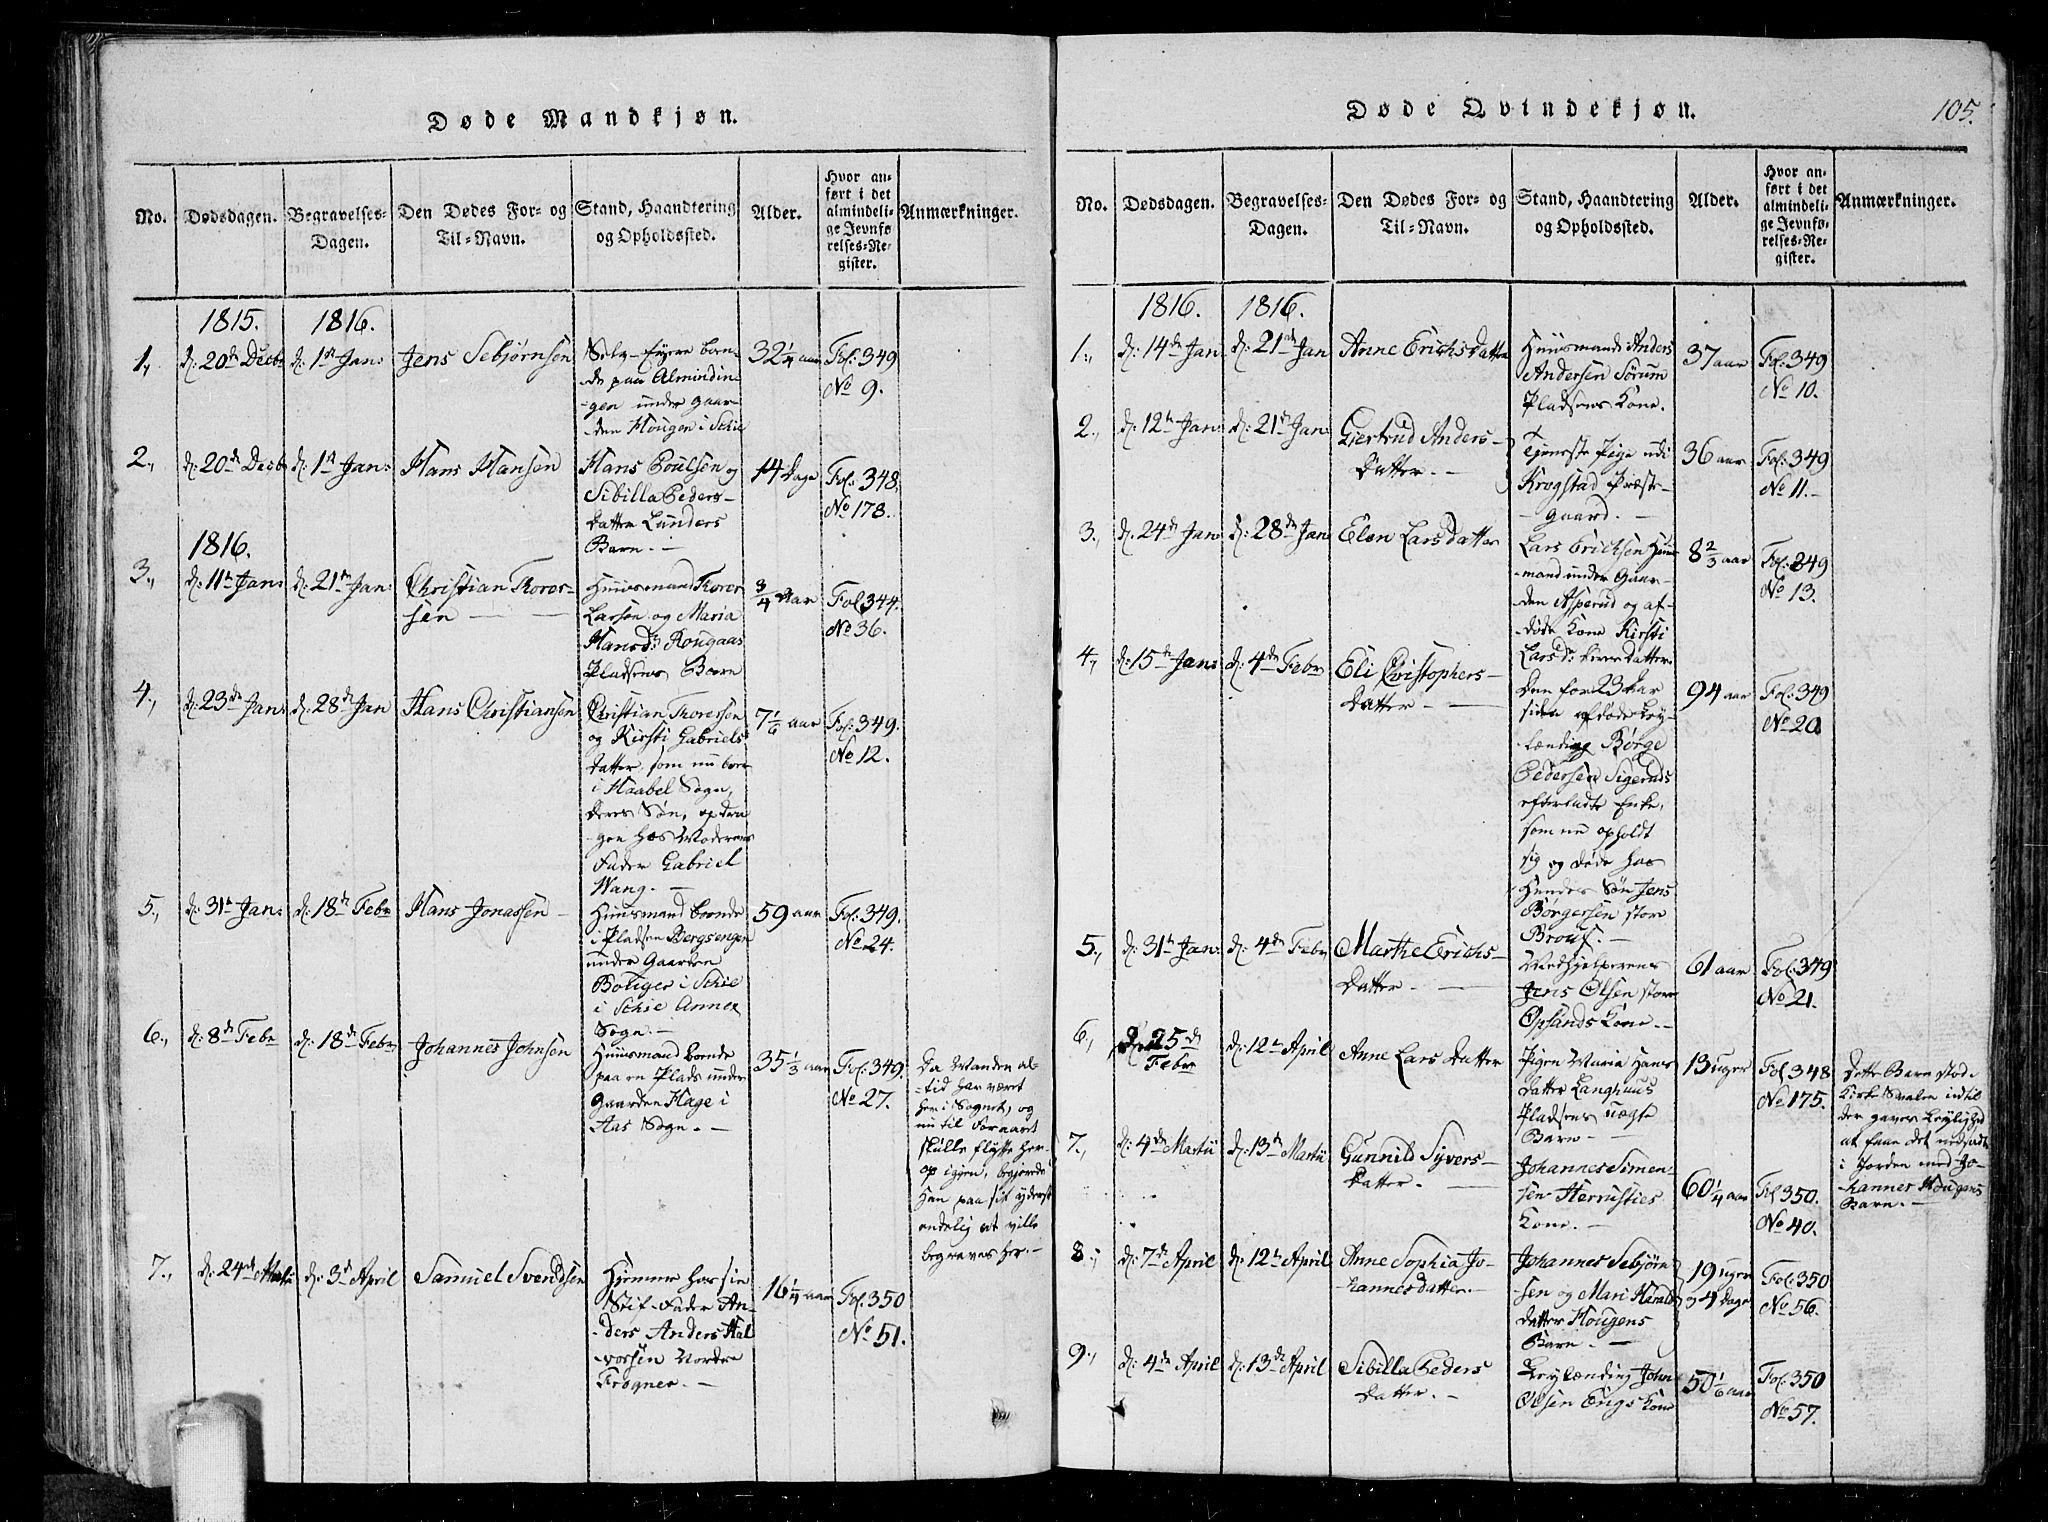 Døde Mandkjøn.
No.
Dødsdagen.
Begravelses-
Dagen.
Den Dødes For- og
Til-Navn.
Stand, Haandtering
og Opholdssted.
Alder.
Hvor an-
ført i det
almindeli-
ge Jevnfø-
relses-Re-
gister.
Anmærkninger.
1815.
1816.
1.,
d: 20de Decbr
d: 1ste Jan:
Jens Sebjørnsen
Selv-Eyere boen-
de paa Almindin-
gen under Gaar-
den Hougen i Schie
32 1/4 aar
Fol: 349
No 9.
2.,
d: 20de Decbr
d: 1ste Jan:
Hans Hansen
Hans Poulsen og
Sibilla Peders-
datter Lunders
Barn. —
14 Dage
Fol: 348,
No 178.
1816.
3.,
d: 11te Jan:
d: 21de Jan:
Christian Thorer-
sen —
Huusmand Thorer
Larsen og Maria
Hansd: Rougaas
Pladsens Barn
3/4 Aar
Fol 344.
No 36.
4.,
d: 23de Jan:
d: 28de Jan
Hans Christiansen
Christian Thorersen
og Kirsti Gabriels-
datter, som nu boer
i Haabel Sogn,
deres Søn, opdra-
gen hos Moderens
Fader Gabriel
Wang. —
7 1/6 aar
Fol: 349.
No 12.
5.,
d: 31te Jan:
d: 18de Febr
Hans Jonassen —
Huusmand boende
i Pladsen Bergsengen
under Gaarden
Boliger i Schie
i Schie Annex
Sogn. —
59 aar
Fol: 349.
No 24.
6.,
d: 8de Febr
d: 18de Febr
Johannes Johnsen
Huusmand boende
paa en Plads under
Gaarden Hage i
Aas Sogn. —
35 1/3 aar
Fol: 349.
No 27.
Da Manden al-
tid har været
her i Sognet, og
nu til Foraaret
skulle flytte her-
op igien, begierede
han paa sit yderste
endelig at ville
begraves her. —
7.,
d: 24de Martii
d: 3de April
Samuel Svendsen
Hjemme hos sin
Stif-Fader An-
ders Anders Hal-
vorsen Nordre
Frogner. —
16 1/4 aar
Fol. 350
No 51.
Døde Qvindekjøn.
105.
No.
Dødsdagen.
Begravelses-
Dagen.
Den Dødes For- og
Til-Navn.
Stand, Haandtering
og Opholdssted.
Alder.
Hvor an-
ført i det
almindeli-
ge Jevnfø-
relses-Re-
gister.
Anmærkninger.
1816.
1816.
1.,
d: 14de Jan:
d: 21de Jan
Anne Erichsdatter
Huusmands Anders
Andersen Sørum
Pladsens Kone.
37 aar
Fol: 349
No 10.
2.,
d: 12te Jan:
d: 21de Jan:
Giertrud Anders-
datter. —
Tjeneste Pige udi
Krogstad Præste-
gaard. —
36 aar
Fol: 349
No 11. -
3.,
d: 24de Jan:
d: 28de Jan
Elen Larsdatter
Lars Erichsen Huus-
mand under Gaar-
den Asperud og af-
døde Kone Kirsti
Larsd: deres datter.
8 2/3 aar
Fol: 349
No 13.
4.,
d: 15de Jan:
d: 4de Febr
Eli Christophers-
datter —
Den for 23 aar
siden afdøde Ley-
lænding Børge
Pedersen Sigeruds
efterladte Enke,
som nu opholdt
sig og døde hos
hendes Søn Jens
Børgersen store
Brouf. —
94 aar
Fol: 349
No 20.
5.,
d: 31te Jan:
d: 4de Febr
Marthe Erichs-
datter. —
Medhjelperens
Jens Olsen store
Opsands Kone. —
61 aar
Fol: 349
No 21.
6.,
d: 25de
Febr
d: 12te April
Anne Lars datter
Pigen Maria Hans
datter Langhuus
Pladsens uægte
Barn —
13 uger
Fol 348
No 175.
Dette Barn stod i
Kirke Svalen indtil
der gaves Leylighed
at faae det nedsadt
i Jorden med Jo-
hannes Hougens
Barn. —
7.,
d: 4de Martii
d: 13de Martii
Gunnild Syvers-
datter. —
Johannes Simen-
sen Herrusties
Kone. —
60 1/4 aar
Fol 350.
No 40.
8.,
d: 7de April
d: 12te April
Anne Sophia Jo-
hannesdatter. —
Johannes Sebjørn
sen og Mari Harals
datter Hougens
Barn. —
19 uger
og 4 dage
Fol: 350
No 56.
9.,
d: 4de April
d: 13de April
Sibilla Peders
datter. —
Leylænding John
Olsen Engs Kone
50 1/6 aar
Fol: 350
No 57.